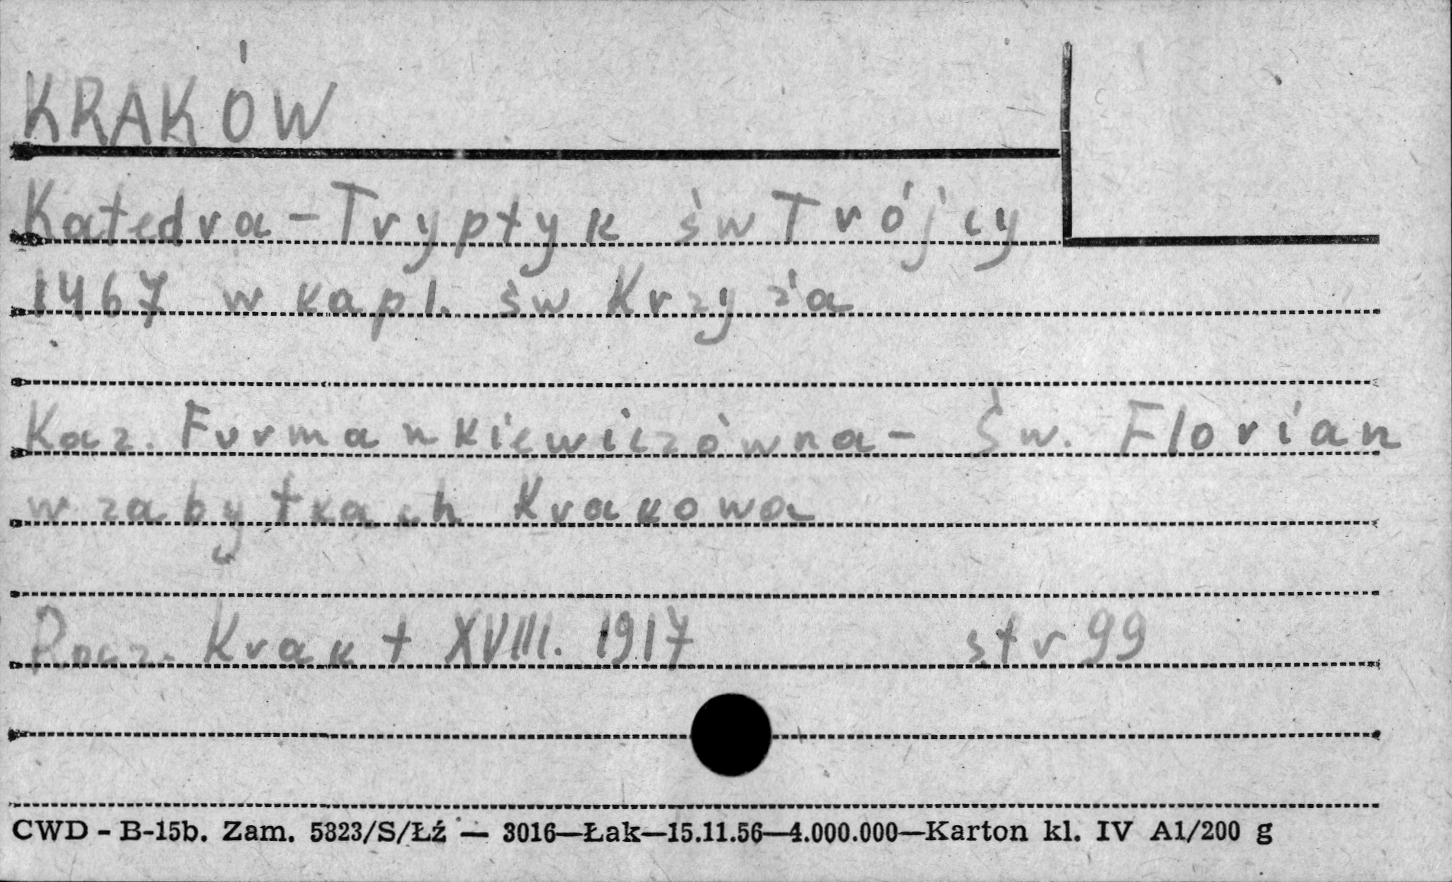 KRAKÓW
Katedra - Tryptyk św Trójcy
1467 w kapl. św Krzyża
Kaz. Furmankiewiczówna - Św. Florian
w zabytkach Krakowa
Rocz. Krak t XVIII. 1917 str 99
CWD - B-15b. Zam. 5323/S/Łź — 3016—Łak—15.11.56—4.000.000—Karton kl. IV A1/200 g